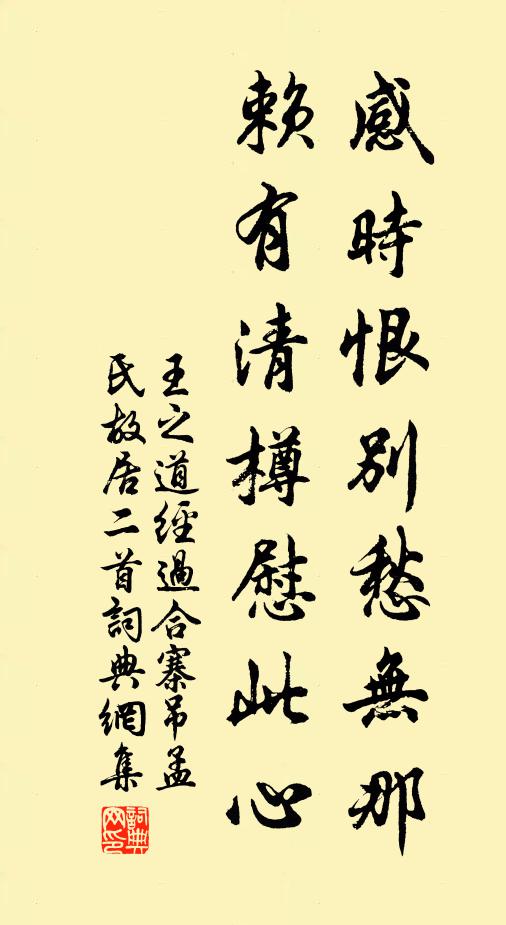 感時恨別愁無那
賴有清樽慰此心
王之道經過合寨吊孟
民故居二首詞典網集
詞典
网印